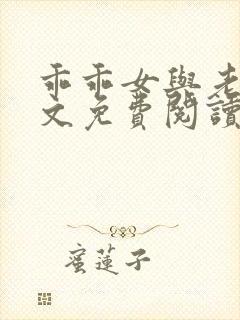 乖乖女與老
文免費閱讀
蜜蓮子